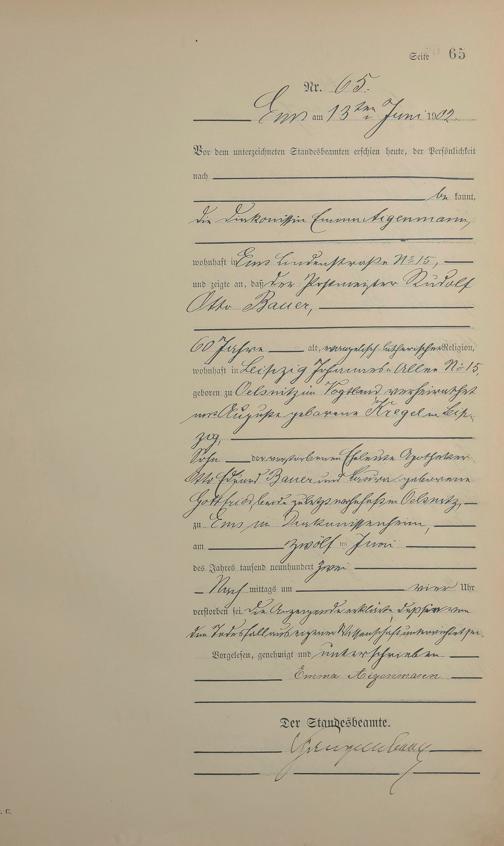 Seite 65
Nr. 65.
Ems am 13ten Juni 1902.
Vor dem unterzeichneten Standesbeamten erschien heute, der Persönlichkeit
nach
be kannt,
die Diakonissin Emma Aigenmann,
wohnhaft in Ems Lindenstraße No 15,
und zeigte an, daß der Postmeister Rudolf
Otto Bauer,
60 Jahre alt, evangelisch lutherischer Religion,
wohnhaft in Leipzig Johannes Allee No 15,
geboren zu Oelsnitz im Vogtland verheirathet
mit Auguste geborene Kregel in Leip-
zig,
Sohn der verstorbenen Eheleute Apotheker
Otto Eduard Bauer und Laura geborene
Gottfried beide zuletzt wohnhaft in Oelsnitz,
zu Ems im Diakonissenheim,
am zwölf ten Juni
des Jahres tausend neunhundert zwei
Nach mittags um vier Uhr
verstorben sei. Die Anzeigende erklärte, daß sie von
dem Todesfall aus eigener Wissenschaft unterrichtet sei.
Vorgelesen, genehmigt und unterschrieben
Emma Aigenmann
Der Standesbeamte.